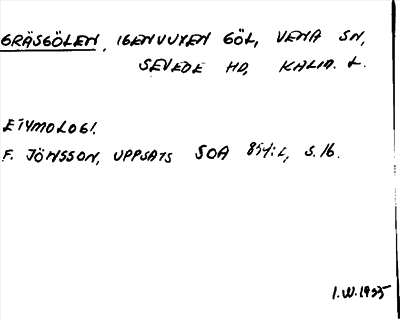 GRÄSGÖLEN, IGENVUXEN GÖL, VENA SN,
SEVEDE HD, KALM. L.
ETYMOLOGI.
F. JÖNSSON, UPPSATS SOA 854:L, S. 16.
I.W. 1935